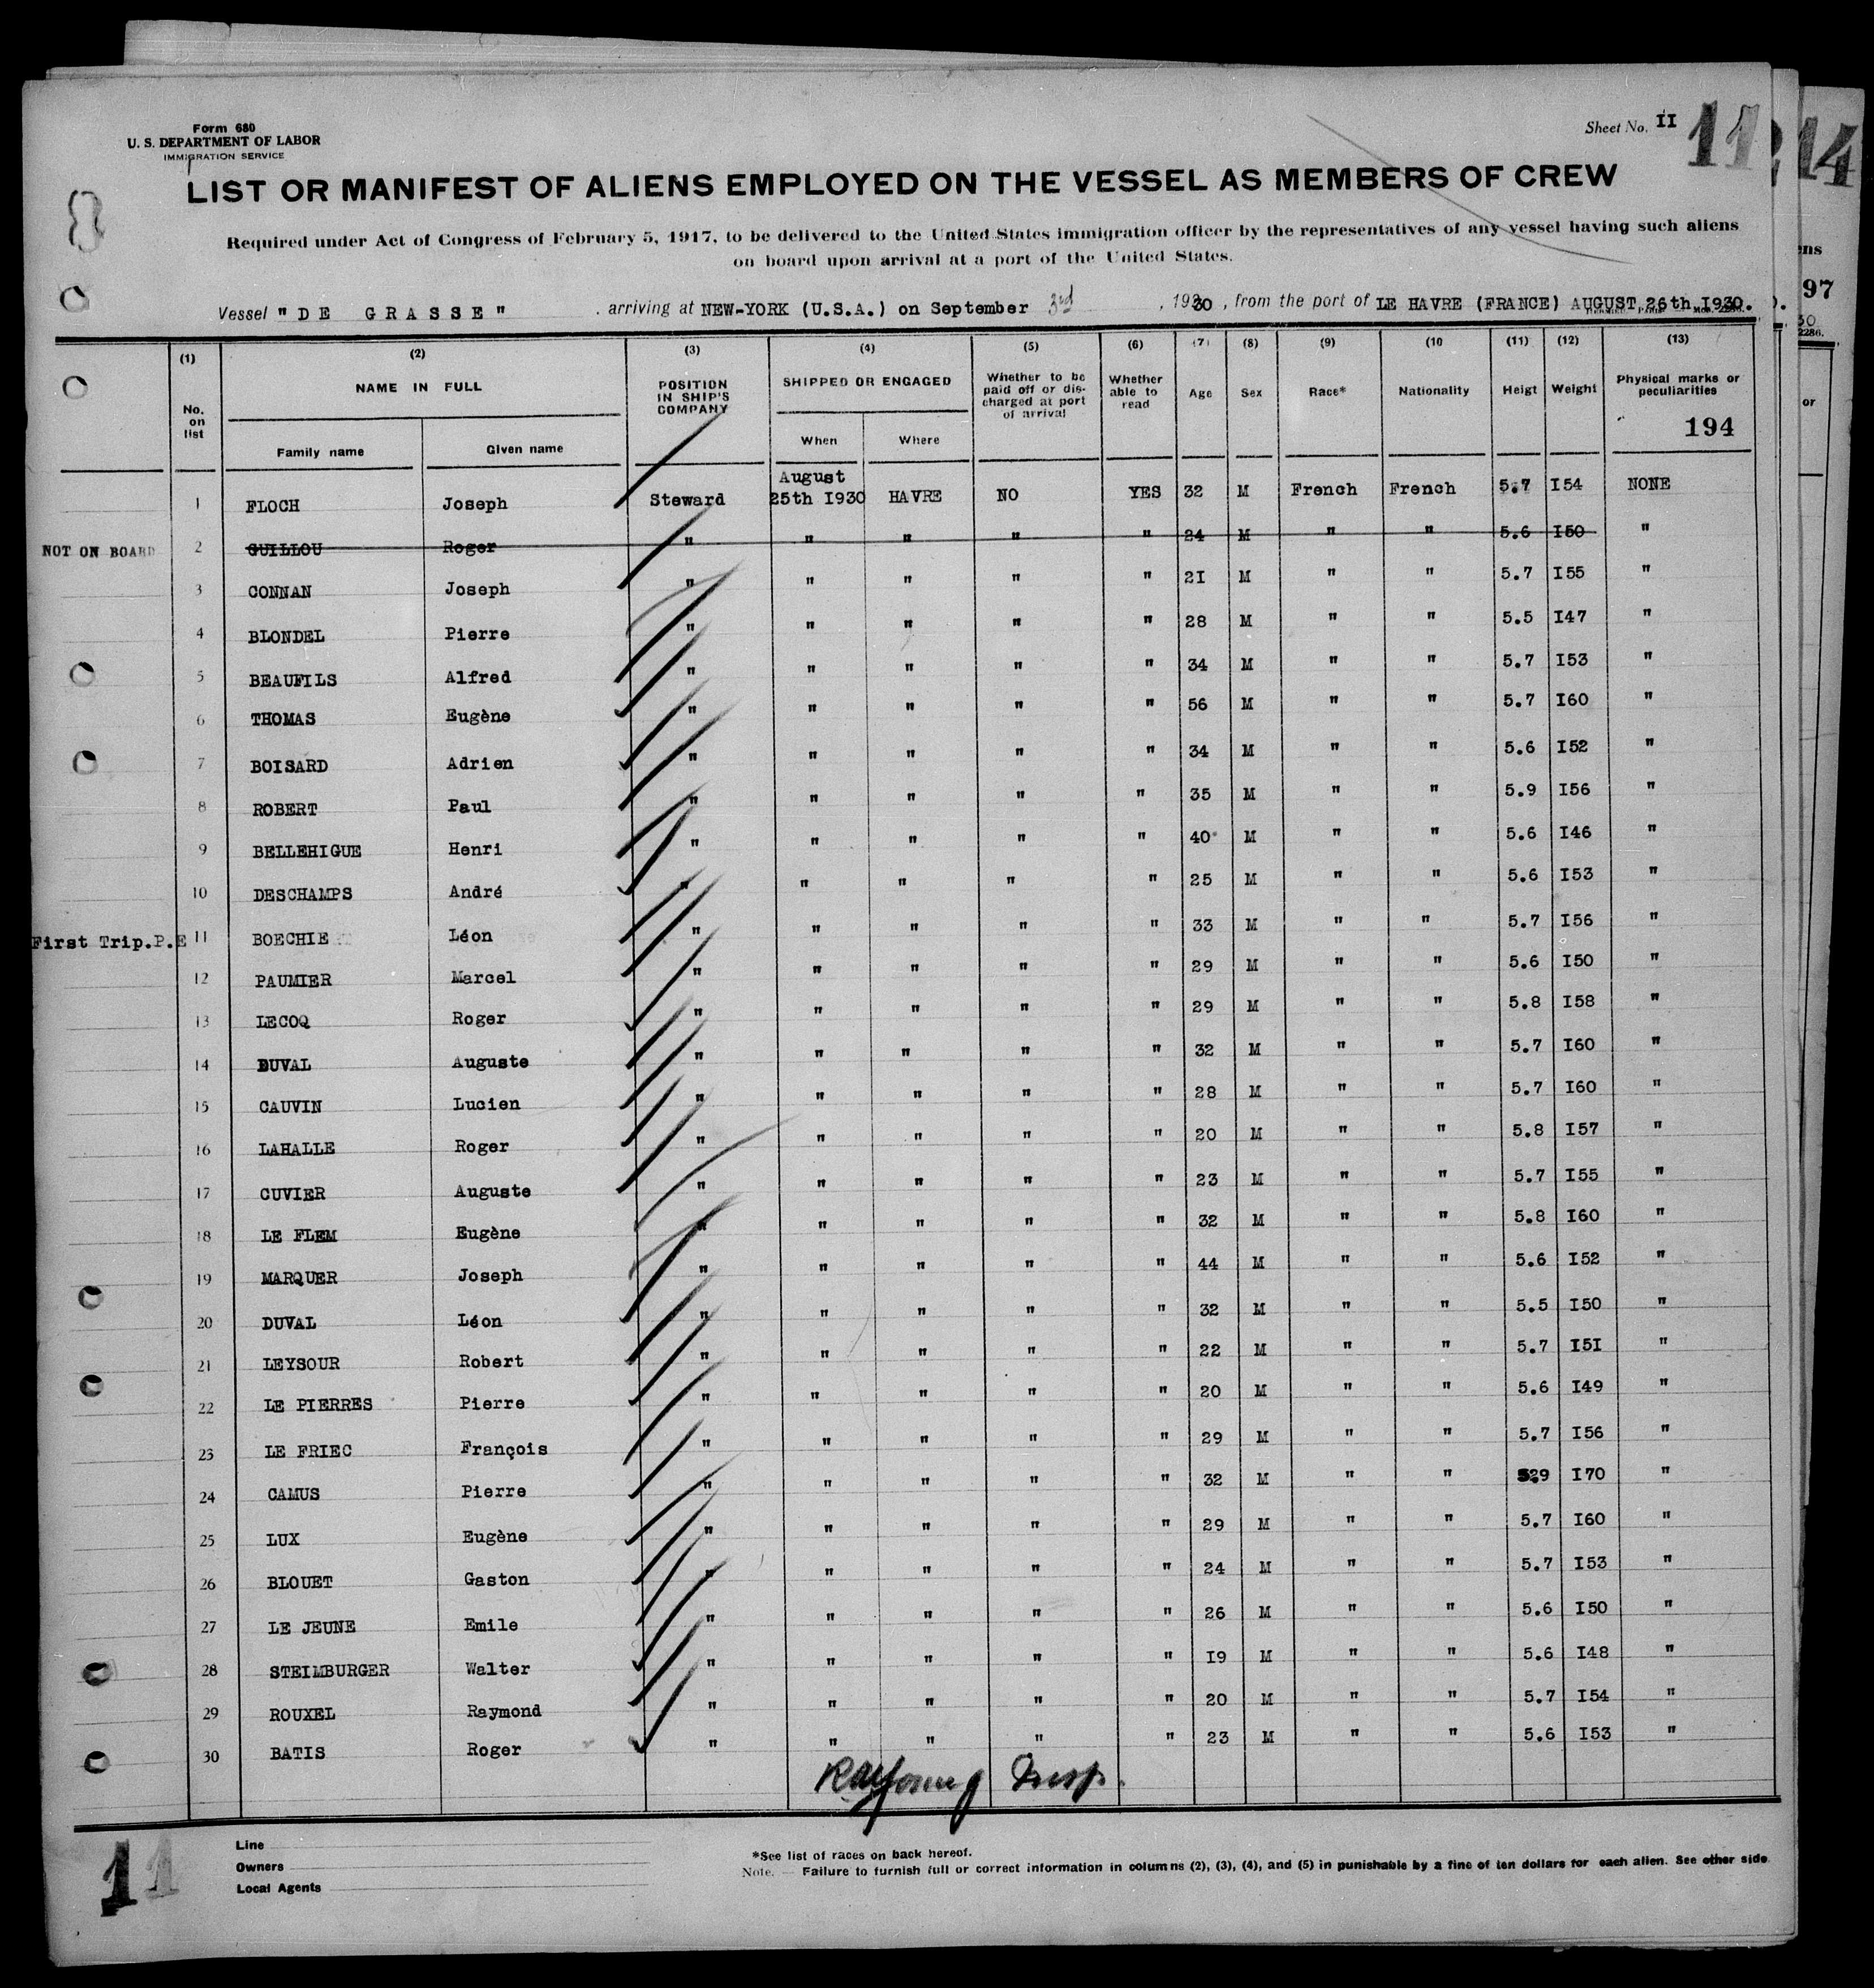 Form 680
U. S. DEPARTMENT OF LABOR
IMMIGRATION SERVICE
Sheet No. II
11
14
LIST OR MANIFEST OF ALIENS EMPLOYED ON THE VESSEL AS MEMBERS OF CREW
Required under Act of Congress of February 5, 1917, to be delivered to the United States immigration officer by the representatives of any vessel having such aliens
on board upon arrival at a port of the United States.
ens
97
Vessel "DE GRASSE" arriving at NEW-YORK (U.S.A.) on September 3rd, 1930, from the port of LE HAVRE (FRANCE) AUGUST 26th I930.
30
2286.
(1) (2) (3) (4) (5) (6) (7) (8) (9) (10 (11) (12) (13)
No. on list NAME IN FULL POSITION IN SHIP'S COMPANY SHIPPED OR ENGAGED Whether to be paid off or discharged at port of arrival Whether able to read Age Sex Race* Nationality Heigt Weight Physical marks or peculiarities
or
194
Family name Given name When Where
1 FLOCH Joseph Steward August 25th I930 HAVRE NO YES 32 M French French 5.7 I54 NONE
NOT ON BOARD 2 GUILLOU Roger " " " " " 24 M " " 5.6 I50 "
3 CONNAN Joseph " " " " " 2I M " " 5.7 I55 "
4 BLONDEL Pierre " " " " " 28 M " " 5.5 I47 "
5 BEAUFILS Alfred " " " " " 34 M " " 5.7 I53 "
6 THOMAS Eugène " " " " " 56 M " " 5.7 I60 "
7 BOISARD Adrien " " " " " 34 M " " 5.6 I52 "
8 ROBERT Paul " " " " " 35 M " " 5.9 I56 "
9 BELLEHIGUE Henri " " " " " 40 M " " 5.6 I46 "
10 DESCHAMPS André " " " " " 25 M " " 5.6 I53 "
First Trip.P.E 11 BOECHIE Léon " " " " " 33 M " " 5.7 I56 "
12 PAUMIER Marcel " " " " " 29 M " " 5.6 I50 "
13 LECOQ Roger " " " " " 29 M " " 5.8 I58 "
14 DUVAL Auguste " " " " " 32 M " " 5.7 I60 "
15 CAUVIN Lucien " " " " " 28 M " " 5.7 I60 "
16 LAHALLE Roger " " " " " 20 M " " 5.8 I57 "
17 CUVIER Auguste " " " " " 23 M " " 5.7 I55 "
18 LE FLEM Eugène " " " " " 32 M " " 5.8 I60 "
19 MARQUER Joseph " " " " " 44 M " " 5.6 I52 "
20 DUVAL Léon " " " " " 32 M " " 5.5 I50 "
21 LEYSOUR Robert " " " " " 22 M " " 5.7 I5I "
22 LE PIERRES Pierre " " " " " 20 M " " 5.6 I49 "
23 LE FRIEC François " " " " " 29 M " " 5.7 I56 "
24 CAMUS Pierre " " " " " 32 M " " I70 "
25 LUX Eugène " " " " " 29 M " " 5.7 I60 "
26 BLOUET Gaston " " " " " 24 M " " 5.7 I53 "
27 LE JEUNE Emile " " " " " 26 M " " 5.6 I50 "
28 STEIMBURGER Walter " " " " " I9 M " " 5.6 I48 "
29 ROUXEL Raymond " " " " " 20 M " " 5.7 I54 "
30 BATIS Roger " " " " " 23 M " " 5.6 I53 "
Insp.
11
Line
Owners
Local Agents
*See list of races on back hereof.
Note. — Failure to furnish full or correct information in columns (2), (3), (4), and (5) in punishable by a fine of ten dollars for each alien. See other side